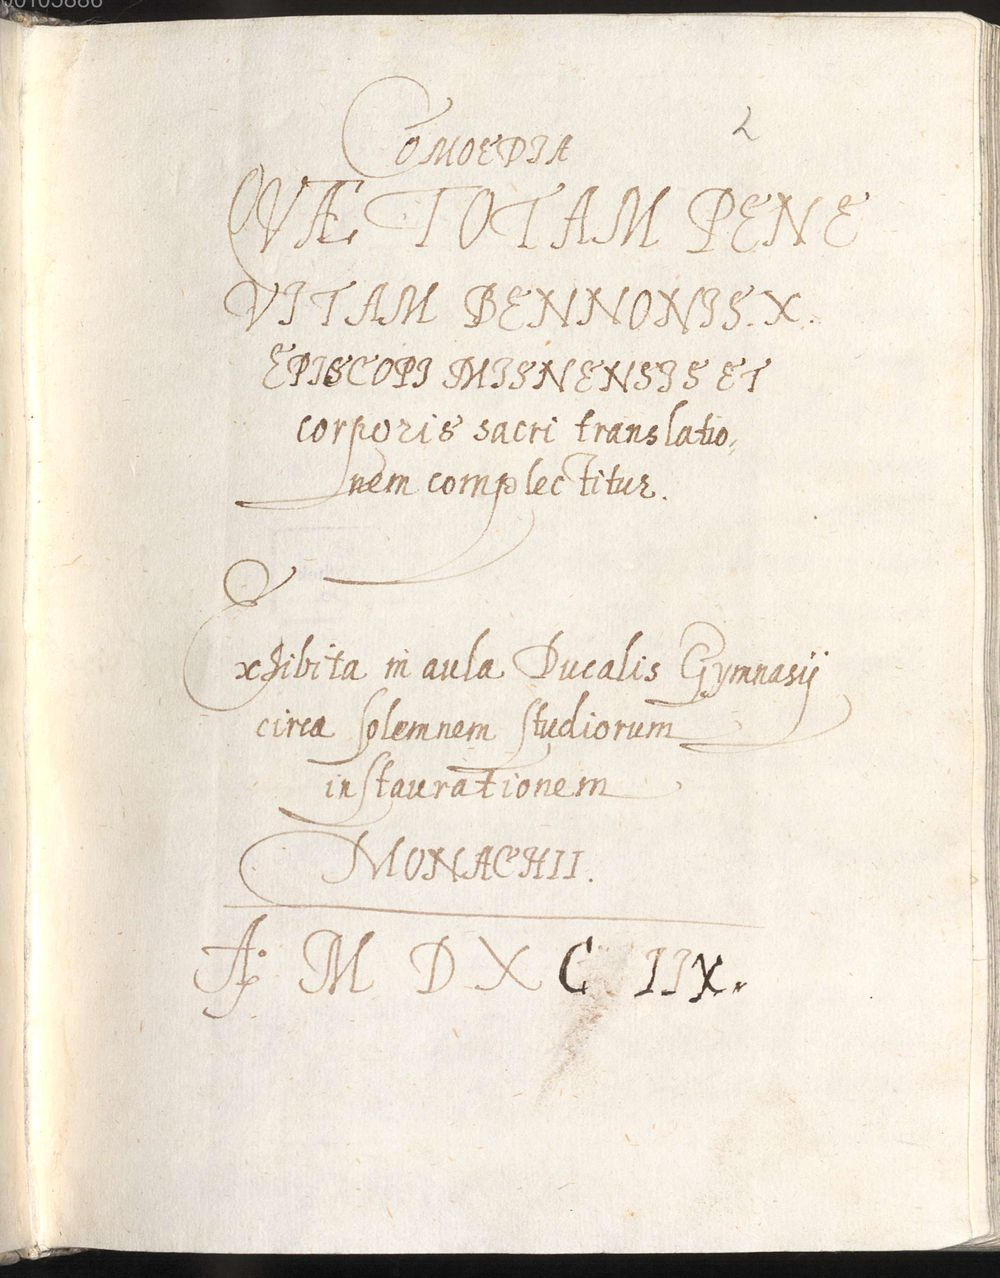 00105886
2
COMOEDIA
QVÆ TOTAM PENE
VITAM BENNONIS. X.
EPISCOPI MISNENSIS ET
corporis sacri translatio,
nem complectitur.
Exhibita in aula Ducalis Gymnasij
circa solemnem studiorum
instaurationem
MONACHII.
Aº M D X C IIX.